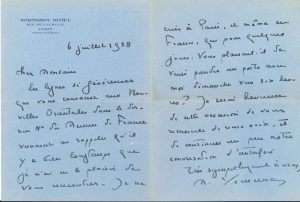 NORMANDY HOTEL
PARIS
6 juillet 1938
Cher Monsieur
Les lignes si généreuses
que vous consacrez aux Nou-
velles Orientales dans le der-
nier No de Revue de France
viennent me rappeler qu'il
y a bien longtemps que
je n'ai eu le plaisir de
vous rencontrer. Je ne
suis à Paris, et même en
France, que pour quelques
jours. Vous plairait-il de
venir prendre un porto avec
moi dimanche vers six heu-
res ? Je serai heureuse
de cette occasion de vous
remercier de vive voix, et
de continuer un peu notre
conversation d'autrefois
Très sympathiquement à vous,
M. Yourcenar